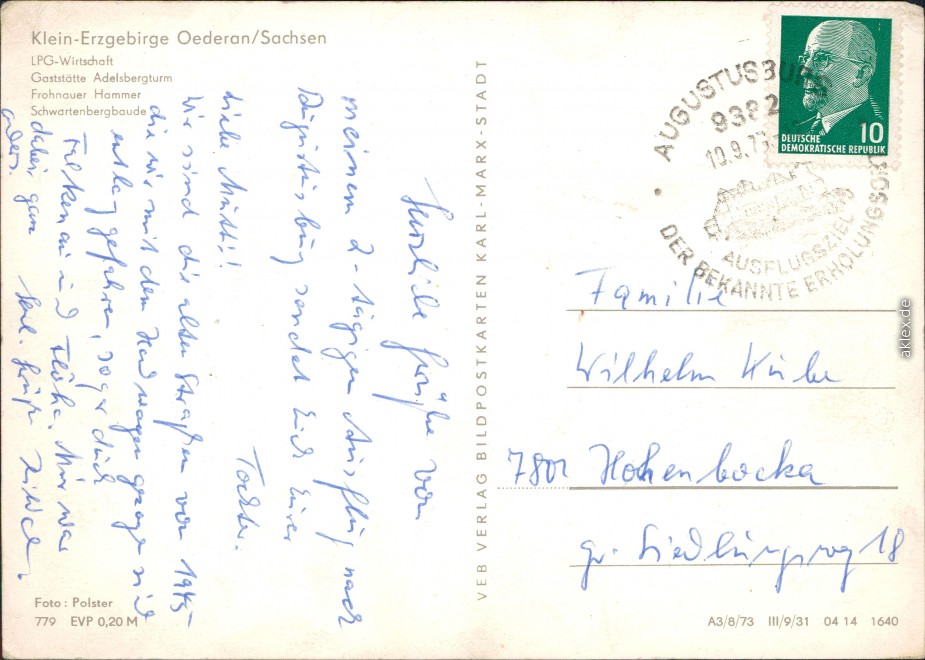 Klein-Erzgebirge Oederan/Sachsen
LPG-Wirtschaft
Gaststätte Adelsbergturm
Frohnauer Hammer
Schwartenbergbaude
Herzliche Grüße von
meinem 2-tägigen Ausflug nach
Augustusburg sendet Euch Eure
Tochter.
Liebe Mutti!
Wir sind die alten Straßen von 1945
die wir mit dem Handwagen gezogen sind
entlag gefahren, sogar durch
Falkenau und Flöha. Mir war
dabei ganz
anders.
Foto: Polster
779 EVP 0,20 M
VEB VERLAG BILDPOSTKARTEN KARL-MARX-STADT
AUGUSTUSBURG
9382
10.9.73
AUSFLUGSZIEL UND
DER BEKANNTE ERHOLUNGSORT
DEUTSCHE
DEMOKRATISCHE REPUBLIK
10
Familie
Wilhelm
7801 Hohenbocka
gr. Siedlungsweg 18
A3/8/73 III/9/31 04 14 1640
aklex.de